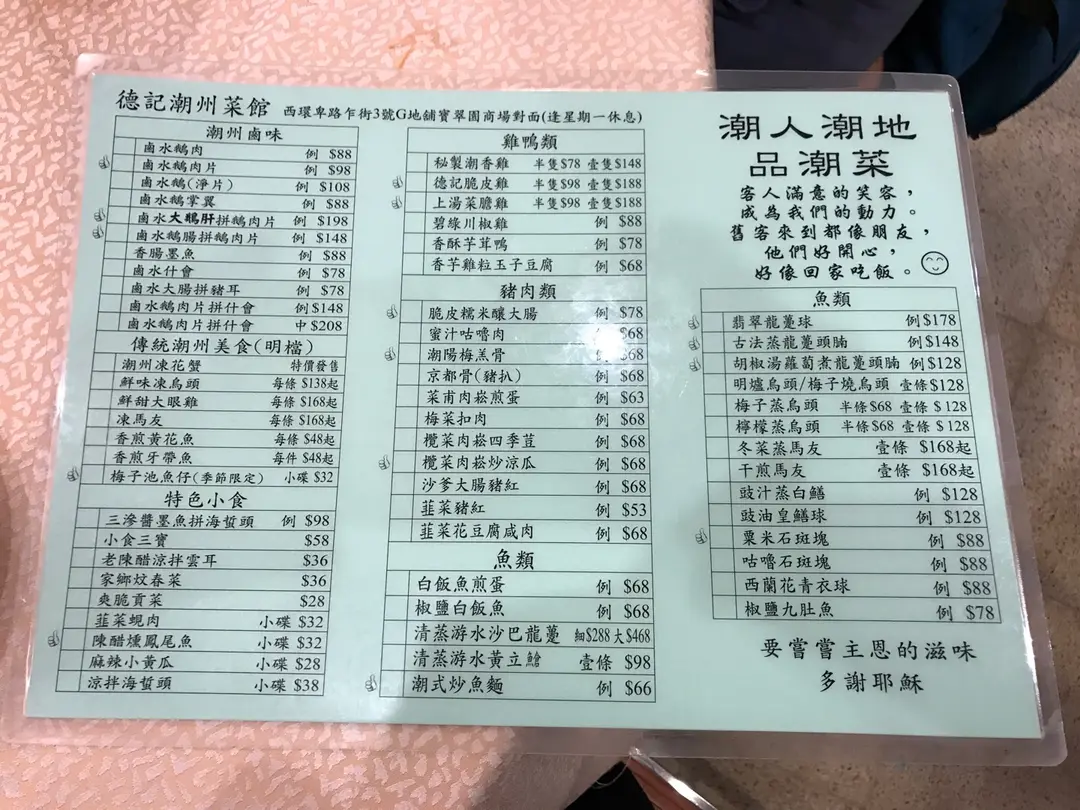 德記潮州菜館 西環卑路乍街3號G地舖寶翠園商場對面(逢星期一休息)
潮州鹵味
鹵水鵝肉 例 $88
鹵水鵝肉片 例 $98
鹵水鵝(淨片) 例 $108
鹵水鵝掌翼 例 $88
鹵水大鵝肝拼鵝肉片 例 $198
鹵水鵝腸拼鵝肉片 例 $148
香腸墨魚 例 $88
鹵水什會 例 $78
鹵水大腸拼豬耳 例 $78
鹵水鵝肉片拼什會 例 $148
鹵水鵝肉片拼什會 中 $208
傳統潮州美食(明檔)
潮州凍花蟹 特價發售
鮮味凍烏頭 每條 $138起
鮮甜大眼雞 每條 $168起
凍馬友 每條 $168起
香煎黃花魚 每條 $48起
香煎牙帶魚 每件 $48起
梅子池魚仔(季節限定) 小碟 $32
特色小食
三滲醬墨魚拼海蜇頭 例 $98
小食三寶 $58
老陳醋涼拌雲耳 $36
家鄉炆春菜 $36
爽脆貢菜 $28
韮菜蜆肉 小碟 $32
陳醋燻鳳尾魚 小碟 $32
麻辣小黃瓜 小碟 $28
涼拌海蜇頭 小碟 $38
雞鴨類
秘製潮香雞 半隻 $78 壹隻 $148
德記脆皮雞 半隻 $98 壹隻 $188
上湯菜膽雞 半隻 $98 壹隻 $188
碧綠川椒雞 例 $88
香酥芋茸鴨 例 $78
香芋雞粒玉子豆腐 例 $68
豬肉類
脆皮糯米釀大腸 例 $78
蜜汁咕嚕肉 例 $68
潮陽梅羔骨 例 $68
京都骨(豬扒) 例 $68
菜甫肉崧煎蛋 例 $63
梅菜扣肉 例 $68
欖菜肉崧四季荳 例 $68
欖菜肉崧炒涼瓜 例 $68
沙爹大腸豬紅 例 $68
韮菜豬紅 例 $53
韮菜花豆腐咸肉 例 $68
魚類
白飯魚煎蛋 例 $68
椒鹽白飯魚 例 $68
清蒸游水沙巴龍躉 細$288 大$468
清蒸游水黃立鯧 壹條 $98
潮式炒魚麵 例 $66
潮人潮地
品潮菜
客人滿意的笑容，
成為我們的動力。
舊客來到都像朋友，
他們好開心，
好像回家吃飯。
魚類
翡翠龍躉球 例 $178
古法蒸龍躉頭腩 例 $148
胡椒湯蘿蔔煮龍躉頭腩 例 $128
明爐烏頭/梅子燒烏頭 壹條 $128
梅子蒸烏頭 半條 $68 壹條 $128
檸檬蒸烏頭 半條 $68 壹條 $128
冬菜蒸馬友 壹條 $168起
干煎馬友 壹條 $168起
豉汁蒸白鱔 例 $128
豉油皇鱔球 例 $128
粟米石斑塊 例 $88
咕嚕石斑塊 例 $88
西蘭花青衣球 例 $88
椒鹽九肚魚 例 $78
要嘗嘗主恩的滋味
多謝耶穌